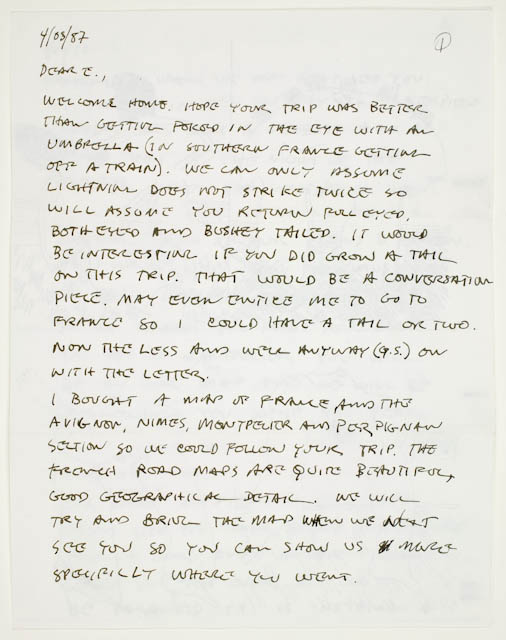 4/08/87
1
DEAR E.,
WELCOME HOME. HOPE YOUR TRIP WAS BETTER
THAN GETTING POKED IN THE EYE WITH AN
UMBRELLA (IN SOUTHERN FRANCE GETTING
OFF A TRAIN). WE CAN ONLY ASSUME
LIGHTNING DOES NOT STRIKE TWICE SO
WILL ASSUME YOU RETURN FULL EYED,
BOTH EYED AND BUSHEY TAILED. IT WOULD
BE INTERESTING IF YOU DID GROW A TAIL
ON THIS TRIP. THAT WOULD BE A CONVERSATION
PIECE. MAY EVEN ENTICE ME TO GO TO
FRANCE SO I COULD HAVE A TAIL OR TWO.
NON THE LESS AND WELL ANYWAY (G.S.) ON
WITH THE LETTER.
I BOUGHT A MAP OF FRANCE, AND THE
AVIGNON, NIMES, MONTPELIER AND PERPIGNAN
SECTION SO WE COULD FOLLOW YOUR TRIP. THE
FRENCH ROAD MAPS ARE QUITE BEAUTIFUL,
GOOD GEOGRAPHICAL DETAIL. WE WILL
TRY AND BRING THE MAP WHEN WE NEXT
SEE YOU SO YOU CAN SHOW US MORE
SPECIFILLY WHERE YOU WENT.